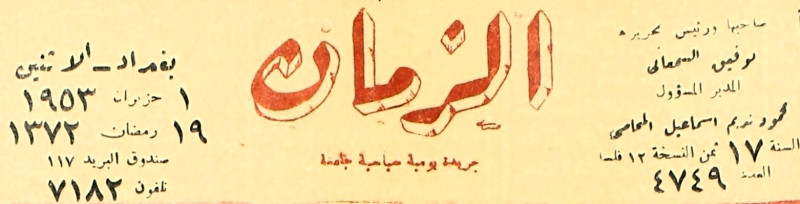 صاحبها ورئيس تحريره
توفيق السمعاني
المدير المسؤول
محمود نديم اسماعيل المحامي
السنة ١٧ ثمن النسخة ١٢ فلسا
العدد ٤٧٤٩
الزمان
جريدة يومية صباحية جامعة
بغداد - الاثنين
١ حزيران ١٩٥٣
١٩ رمضان ١٣٧٢
صندوق البريد ١١٧
تلفون ٧١٨٢